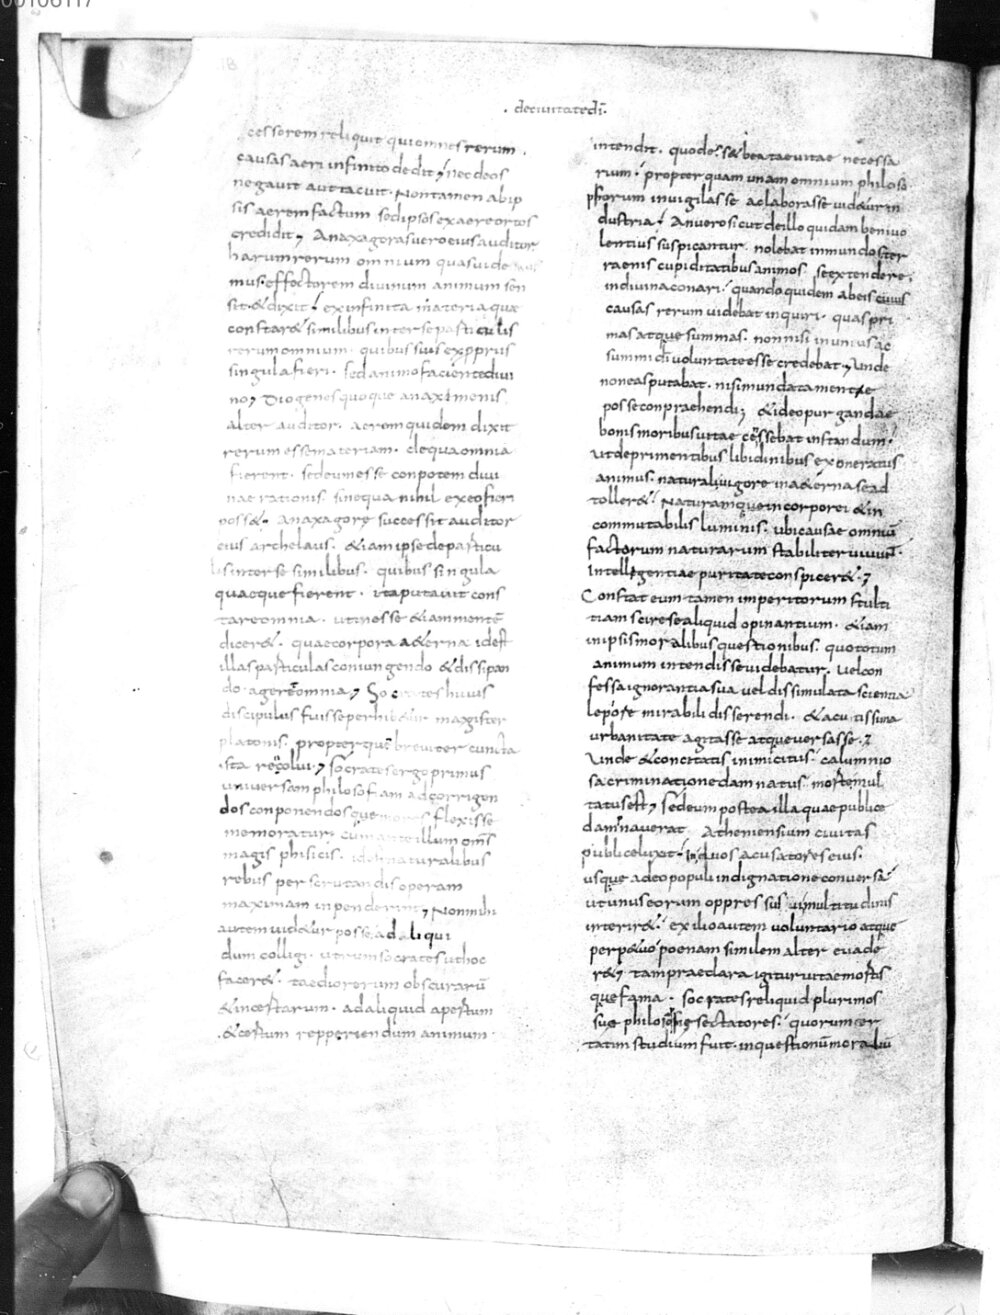 00106117
18
· decivitatedī·
cessorem reliquit quiomnes rerum ·
causas aeri infinito dedit; nec deos
negavit aut tacuit · Non tamen ab ip
sis aerem factum sed ipsos ex aere ortos
credidit; Anaxagoras uero eius auditor
harum rerum omnium quas uide
mus · effectorem diuinum animum sen
sit · & dixit · ex infinita materia quæ
constar& similibus inter se particulis
rerum omnium · quibus suis & propriis
singula fieri · sed animo faciente diui
no; Diogenes quoque anaximenis
alter auditor · aerem quidem dixit
rerum esse materiam · de qua omnia
fierent · sed eum esse conpotem diui
nae rationis sine qua nihil ex eo fieri
poss& · anaxagorę successit auditor
eius archelaus · &iam ipse de particu
lis inter se similibus · quibus singula
quaeque fierent · ita putavit cons
tare omnia · ut inesse &iam mentē
dicer& · quae corpora a&erna · idest
illas particulas coniungendo & dissipan
do · ager& omnia; Socrates huius
discipulus fuisse perhib&ur magister
platonis · propter quē breviter cuncta
ista recolui; Socrates ergo primus
universam philosofiam ad corrigen
dos conponendosque mores flexisse
memoratur; cum ante illum omēs
magis phisicis · idest naturalibus
rebus perscrutandis operam
maximam inpenderint; Non mihi
autem uid&ur posse ad aliqui
dum colligi · utrum socrates ut hoc
facer& · taedio rerum obscurarū
& incertarum · ad aliquid apertum
& certum repperiendum animum ·
intendit · quod e& ad beatae uitae necessa
rium · propter quam unam omnium philoso
phorum invigilasse ac laborasse uid&ur in
dustria · An uero sicut de illo quidam beniuo
lentius suspicantur · nolebat inmundos ter
raenis cupiditatibus animos se extendere
in divina conari · quando quidem ab eis
causas rerum uidebat inquiri · quas pri
mas atque summas · non nisi in unius ac
summi dī voluntate esse credebat; Unde
non eas putabat · nisi mundata mente
posse conpraehendi; & ideo purgandae
bonis moribus uitae cēssebat instandum ·
ut deprimentibus libidinibus exoneratus
animus · naturali uigore in a&erna se ad
toller& · Naturamque incorporei & in
commutabilis luminis · ubi causae omniū
factorum naturarum stabiliter uiuunt ·
Intelligentiae puritate conspicer& ·;
Constat eum tamen inperitorum stulti
tiam scire se aliquid opinantium · &iam
in ipsis moralibus questionibus · quo totum
animum intendisse videbatur · vel con
fessa ignorantia sua vel dissimulata scientia
lepore mirabili disserendi · & acutissima
urbanitate agitasse atque uersasse ·;
Unde & concitatis inimicitiis · calumnio
sa criminatione damnatus · morte mul
tatus est; Sed eum postea illa quae publice
damnaverat Atheniensium civitas
publice luxit · in duos acusatores eius ·
usque adeo populi indignatione conversa
ut unus eorum oppressus ui multitudinis
interir& · exilio autem voluntario atque
perp&uo poenam similem alter evade
r&; tam praeclara igitur uitae mortis
que fama · socrates reliquid plurimos
suę philosofię sectatores · quorum cer
tatim studium fuit · in questionū moraliū